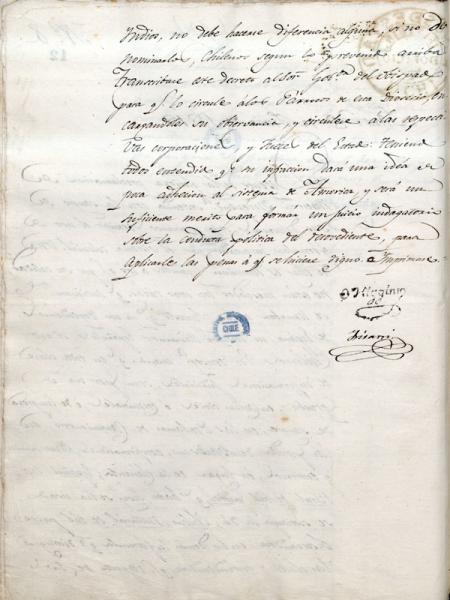 Indios, no debe hacerse diferencia alguna, si no de
nominarlos Chilenos segun lo prevenido arriba
Transcribase este decreto al Sor Gobr. del Obispad
para q.e lo circule a los Parrocos de esta Diocesis, en
cargandoles su observancia, y circulese á las respec
vas corporaciones y Jueces del Estado: teniend
todos entendido q.e su infraccion dará una idea de
poca adhesion al sistema de America y será un
suficiente merito para formar un juicio indagatorio
sobre la conducta politica del desovediente, para
Aplicarle las penas á q.e se hiciere digno. Imprimase
O'Higgins
Irisarri
CHILE